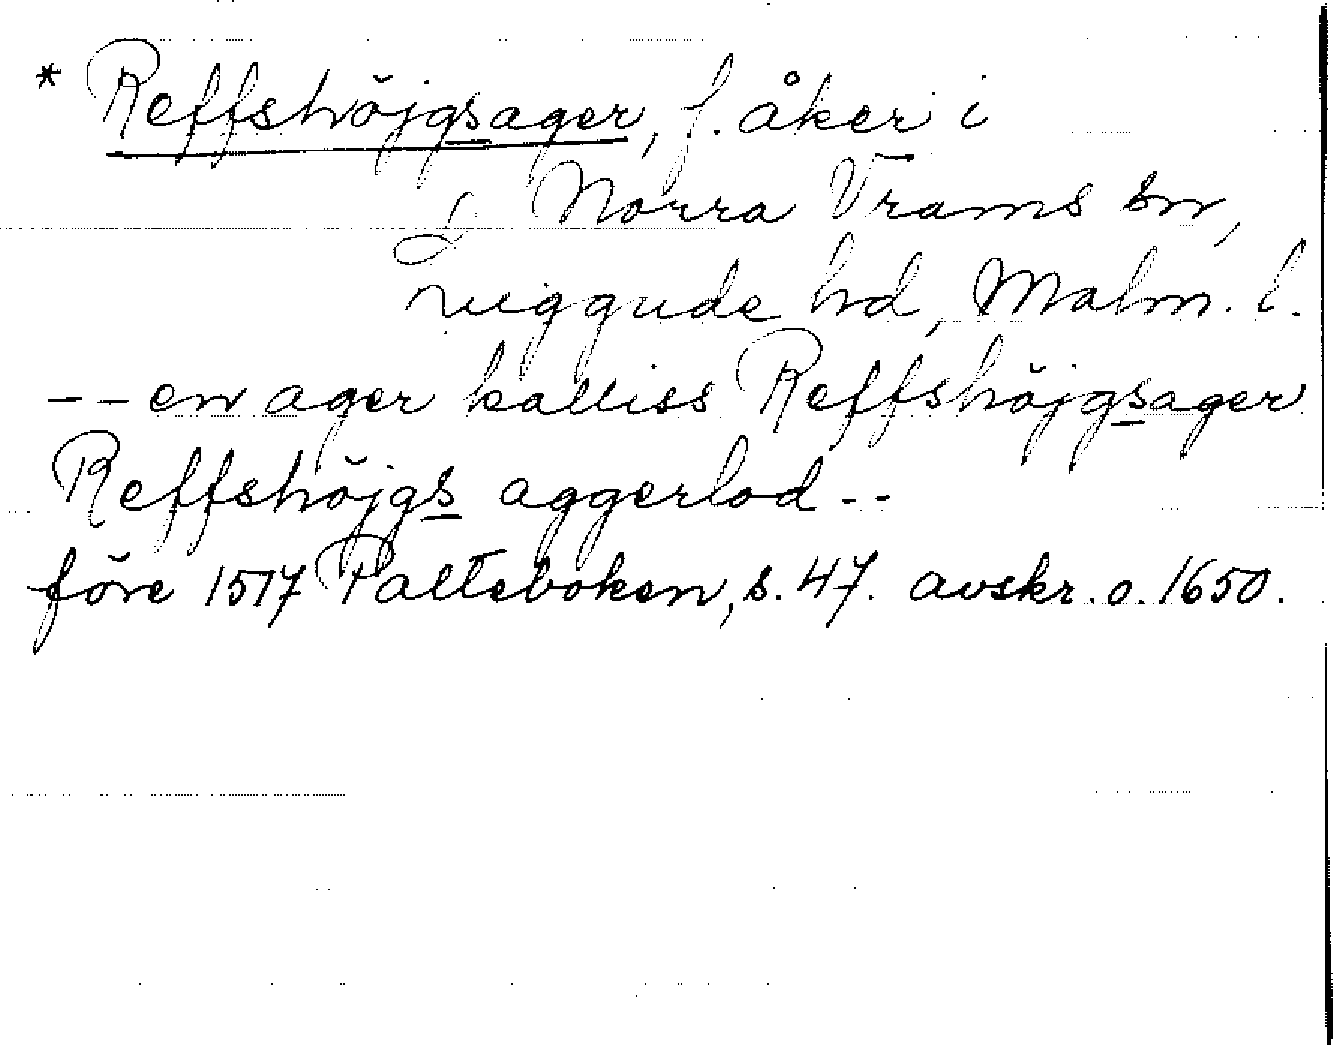 * Reffshöjgsager, f. åker i
Norra Vrams sn,
Luggude hd, Malm. l.
-- en ager kalliss Reffshöjgsager
Reffshöjgs aggerlod --
före 1517 Palteboken, s. 47. avskr. o. 1650.